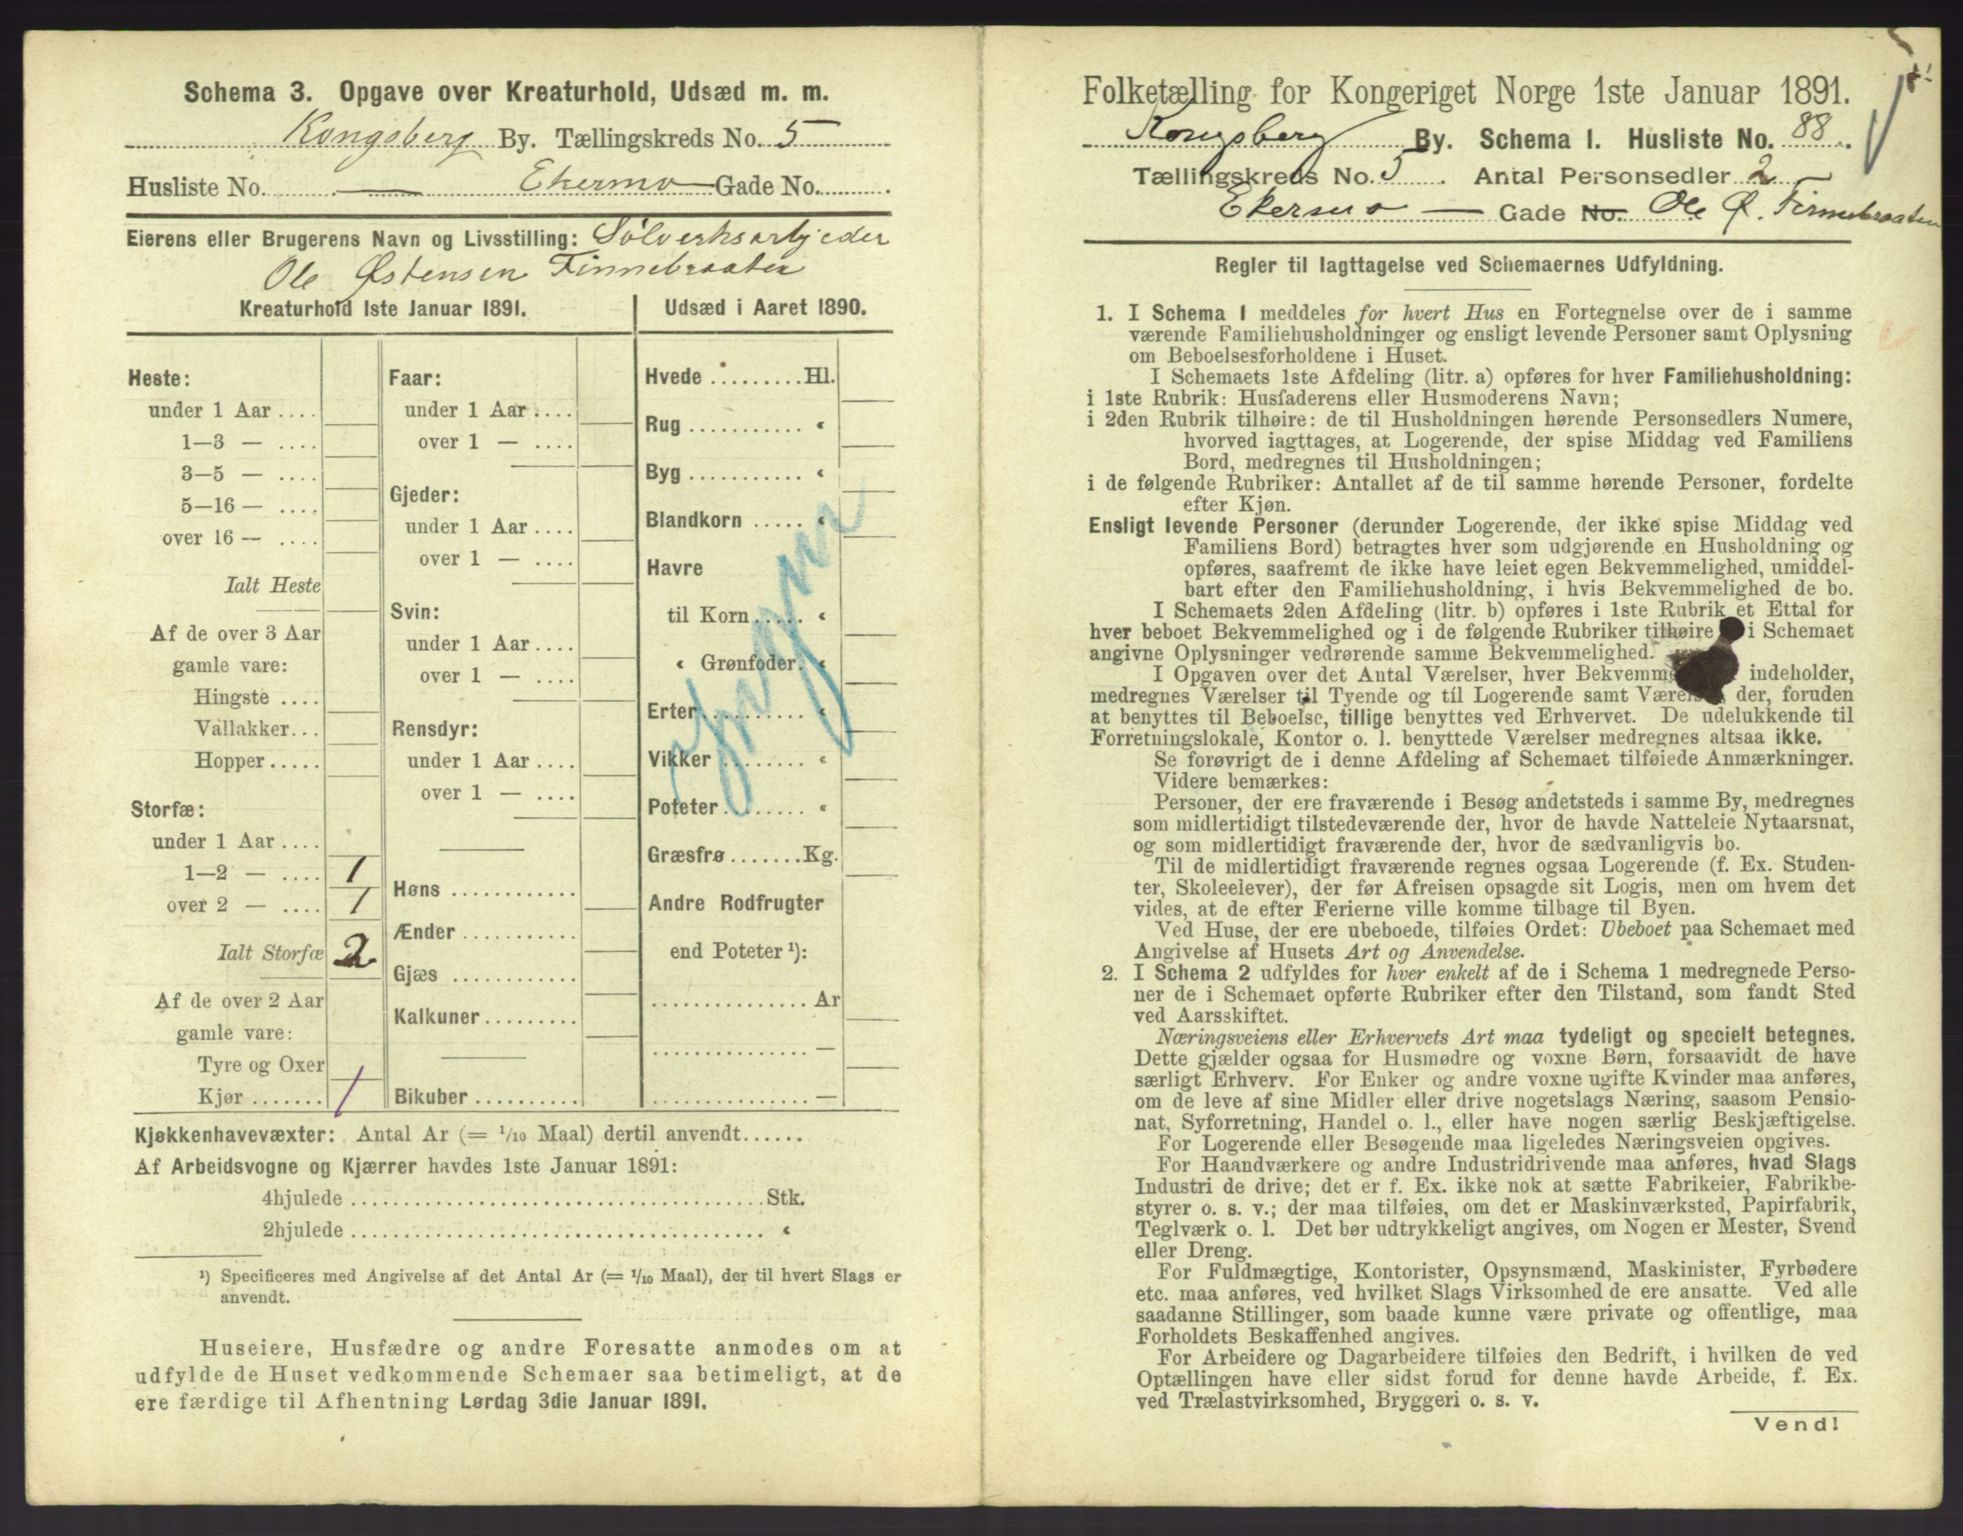 Schema 3. Opgave over Kreaturhold, Udsæd m. m.
Kongsberg By. Tællingskreds No. 5
Husliste No. — Ekermo Gade No.
Eierens eller Brugerens Navn og Livsstilling: Sølverksarbjeder
Ole Østensen Finnebraaten
Kreaturhold 1ste Januar 1891.
Heste:
under 1 Aar ....
1—3 — ....
3—5 — ....
5—16 — ....
over 16 — ....
Ialt Heste
Af de over 3 Aar
gamle vare:
Hingste ....
Vallakker...
Hopper.....
Storfæ:
under 1 Aar ....
1—2 — .... 1
over 2 — .... 1
Ialt Storfæ 2
Af de over 2 Aar
gamle vare:
Tyre og Oxer
Kjør ....... 1
Faar:
under 1 Aar ....
over 1 — ....
Gjeder:
under 1 Aar ....
over 1 — ....
Svin:
under 1 Aar ....
over 1 — ....
Rensdyr:
under 1 Aar ....
over 1 — ....
Høns ............
Ænder ...........
Gjæs ............
Kalkuner.........
Bikuber ..........
Udsæd i Aaret 1890.
Hvede .........Hl.
Rug ........... «
Byg ........... «
Blandkorn ..... «
Havre
til Korn ..... «
« Grønfoder. «
Erter.......... «
Vikker ........ «
Poteter........ «
Græsfrø.......Kg.
Andre Rodfrugter
end Poteter ¹):
............... Ar
............... —
............... —
Ingen
Kjøkkenhavevæxter: Antal Ar (= 1/10 Maal) dertil anvendt......
Af Arbeidsvogne og Kjærrer havdes 1ste Januar 1891:
4hjulede ........................................Stk.
2hjulede ........................................ «
¹) Specificeres med Angivelse af det Antal Ar (= 1/10 Maal), der til hvert Slags er
anvendt.
Huseiere, Husfædre og andre Foresatte anmodes om at
udfylde de Huset vedkommende Schemaer saa betimeligt, at de
ere færdige til Afhentning Lørdag 3die Januar 1891.
Folketælling for Kongeriget Norge 1ste Januar 1891.
Kongsberg By. Schema I. Husliste No. 88
Tællingskreds No. 5. Antal Personsedler 2
Ekersmo — Gade No. Ole Ø. Finnebraaten
Regler til Iagttagelse ved Schemaernes Udfyldning.
1. I Schema 1 meddeles for hvert Hus en Fortegnelse over de i samme
værende Familiehusholdninger og ensligt levende Personer samt Oplysning
om Beboelsesforholdene i Huset.
I Schemaets 1ste Afdeling (litr. a) opføres for hver Familiehusholdning:
i 1ste Rubrik: Husfaderens eller Husmoderens Navn;
i 2den Rubrik tilhøire: de til Husholdningen hørende Personsedlers Numere,
hvorved iagttages, at Logerende, der spise Middag ved Familiens
Bord, medregnes til Husholdningen;
i de følgende Rubriker: Antallet af de til samme hørende Personer, fordelte
efter Kjøn.
Ensligt levende Personer (derunder Logerende, der ikke spise Middag ved
Familiens Bord) betragtes hver som udgjørende en Husholdning og
opføres, saafremt de ikke have leiet egen Bekvemmelighed, umiddel-
bart efter den Familiehusholdning, i hvis Bekvemmelighed de bo.
I Schemaets 2den Afdeling (litr. b) opføres i 1ste Rubrik et Ettal for
hver beboet Bekvemmelighed og i de følgende Rubriker tilhøire i Schemaet
angivne Oplysninger vedrørende samme Bekvemmelighed.
I Opgaven over det Antal Værelser, hver Bekvemme indeholder,
medregnes Værelser til Tyende og til Logerende samt Værelser, der, foruden
at benyttes til Beboelse, tillige benyttes ved Erhvervet. De udelukkende til
Forretningslokale, Kontor o. l. benyttede Værelser medregnes altsaa ikke.
Se forøvrigt de i denne Afdeling af Schemaet tilføiede Anmærkninger.
Videre bemærkes:
Personer, der ere fraværende i Besøg andetsteds i samme By, medregnes
som midlertidigt tilstedeværende der, hvor de havde Natteleie Nytaarsnat,
og som midlertidigt fraværende der, hvor de sædvanligvis bo.
Til de midlertidigt fraværende regnes ogsaa Logerende (f. Ex. Studen-
ter, Skoleelever), der før Afreisen opsagde sit Logis, men om hvem det
vides, at de efter Ferierne ville komme tilbage til Byen.
Ved Huse, der ere ubeboede, tilføies Ordet: Ubeboet paa Schemaet med
Angivelse af Husets Art og Anvendelse.
2. I Schema 2 udfyldes for hver enkelt af de i Schema 1 medregnede Perso-
ner de i Schemaet opførte Rubriker efter den Tilstand, som fandt Sted
ved Aarsskiftet.
Næringsveiens eller Erhvervets Art maa tydeligt og specielt betegnes.
Dette gjælder ogsaa for Husmødre og voxne Børn, forsaavidt de have
særligt Erhverv. For Enker og andre voxne ugifte Kvinder maa anføres,
om de leve af sine Midler eller drive nogetslags Næring, saasom Pensio-
nat, Syforretning, Handel o. l., eller have nogen særlig Beskjæftigelse.
For Logerende eller Besøgende maa ligeledes Næringsveien opgives.
For Haandværkere og andre Industridrivende maa anføres, hvad Slags
Industri de drive; det er f. Ex. ikke nok at sætte Fabrikeier, Fabrikbe-
styrer o. s. v.; der maa tilføies, om det er Maskinværksted, Papirfabrik,
Teglværk o. l. Det bør udtrykkeligt angives, om Nogen er Mester, Svend
eller Dreng.
For Fuldmægtige, Kontorister, Opsynsmænd, Maskinister, Fyrbødere
etc. maa anføres, ved hvilket Slags Virksomhed de ere ansatte. Ved alle
saadanne Stillinger, som baade kunne være private og offentlige, maa
Forholdets Beskaffenhed angives.
For Arbeidere og Dagarbeidere tilføies den Bedrift, i hvilken de ved
Optællingen have eller sidst forud for denne havde Arbeide, f. Ex.
ved Trælastvirksomhed, Bryggeri o. s. v.
Vend!